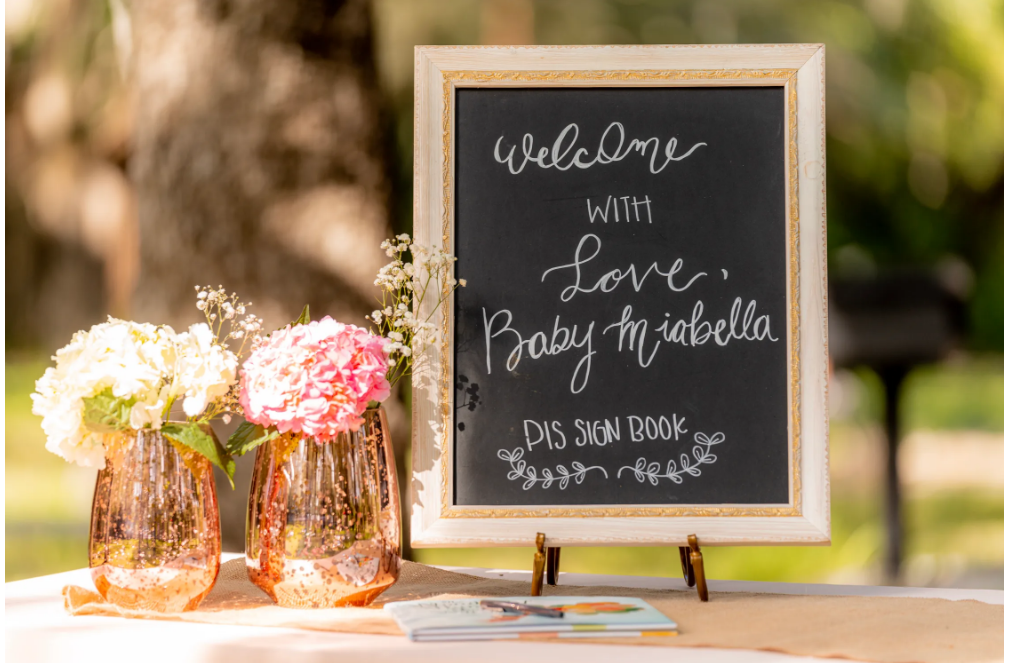 Welcome
WITH
Love,
Baby Miabella
PIS SIGN BOOK